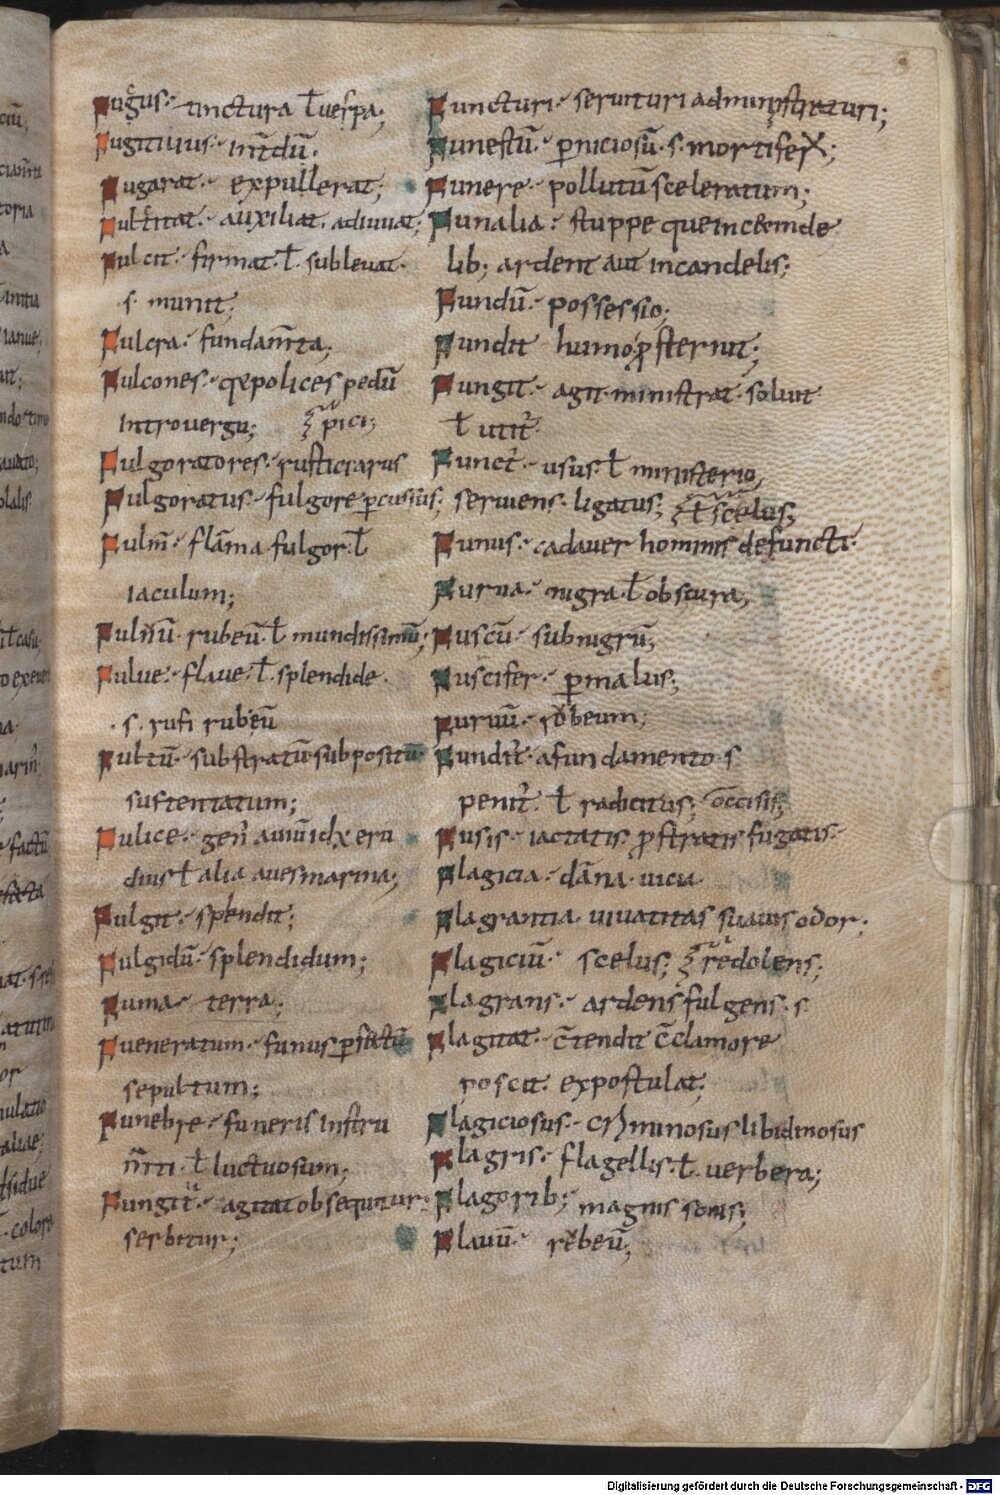 Fugus· tinctura ƚ uespa;
Fugitiuus· inmdū·
Fugarat· expullerat;
Fultitat· auxiliat, adiuuat;
Fulcit· firmat· ƚ subleuat·
·s· munit;
Fulcra· fundam̄ta;
Fulcones· q polices pedū
introuergu;
Fulgoratores· rusticiarus
Fulgoratus· fulgore pcussus;
Fulm̄· flāma fulgor· ƚ
iaculum;
Fuluū· rubeū· ƚ mundissimū;
Fulue· flaue· ƚ splendide·
·s· rufi rubeū
Fultū· substratū subpositū
sustentatum;
Fulice· geñ auiū id
dius ƚ alia aues marina;
Fulgit· splendit;
Fulgidū· splendidum;
Fuma· terra;
Fueneratum· funus pfectū
sepultum;
Funebre· funeris instru
m̄ti· ƚ luctuosum;
Fungit· agitat obsequitur·
serbitur;
Functuri· seruituri administraturi;
Funestū· pniciosū· s· mortifeꝝ;
Funere· pollutū sceleratum;
Funalia· stuppe que inceeinde
lib; ardent aut in candelis;
Fundū· possessio;
Fundit humo psternit;
Fungit· agit· ministrat· soluit
ƚ utit᷑
Funct᷑· usus· ƚ ministerio,
seruiens· ligatus; scelus;
Funus· cadauer hominis defuncti·
Furua· nigra· ƚ obscura;
Fuscū· subnigrū;
Fuscifer· pmalus;
Furuū· robeum;
Fundit᷑· a fundamento· s
penit᷑· ƚ radicitus; occisis;
Fusis· iactatis· pstratis fugatis·
Flagicia· dāna· uicia·
Flagrantia· uiuatitas suauis odor;
Flagiciū· scelus; redolens;
Flagrans· ardens fulgens· s
Flagitat· c̄tendit c̄clamore
poscit· expostulat;
Flagiciosus· criminosus libidinosus
Flagris· flagellis· ƚ uerbera;
Flagorib; magnis sonis;
Flauū· rubeū;
Digitalisierung gefördert durch die Deutsche Forschungsgemeinschaft - DFG